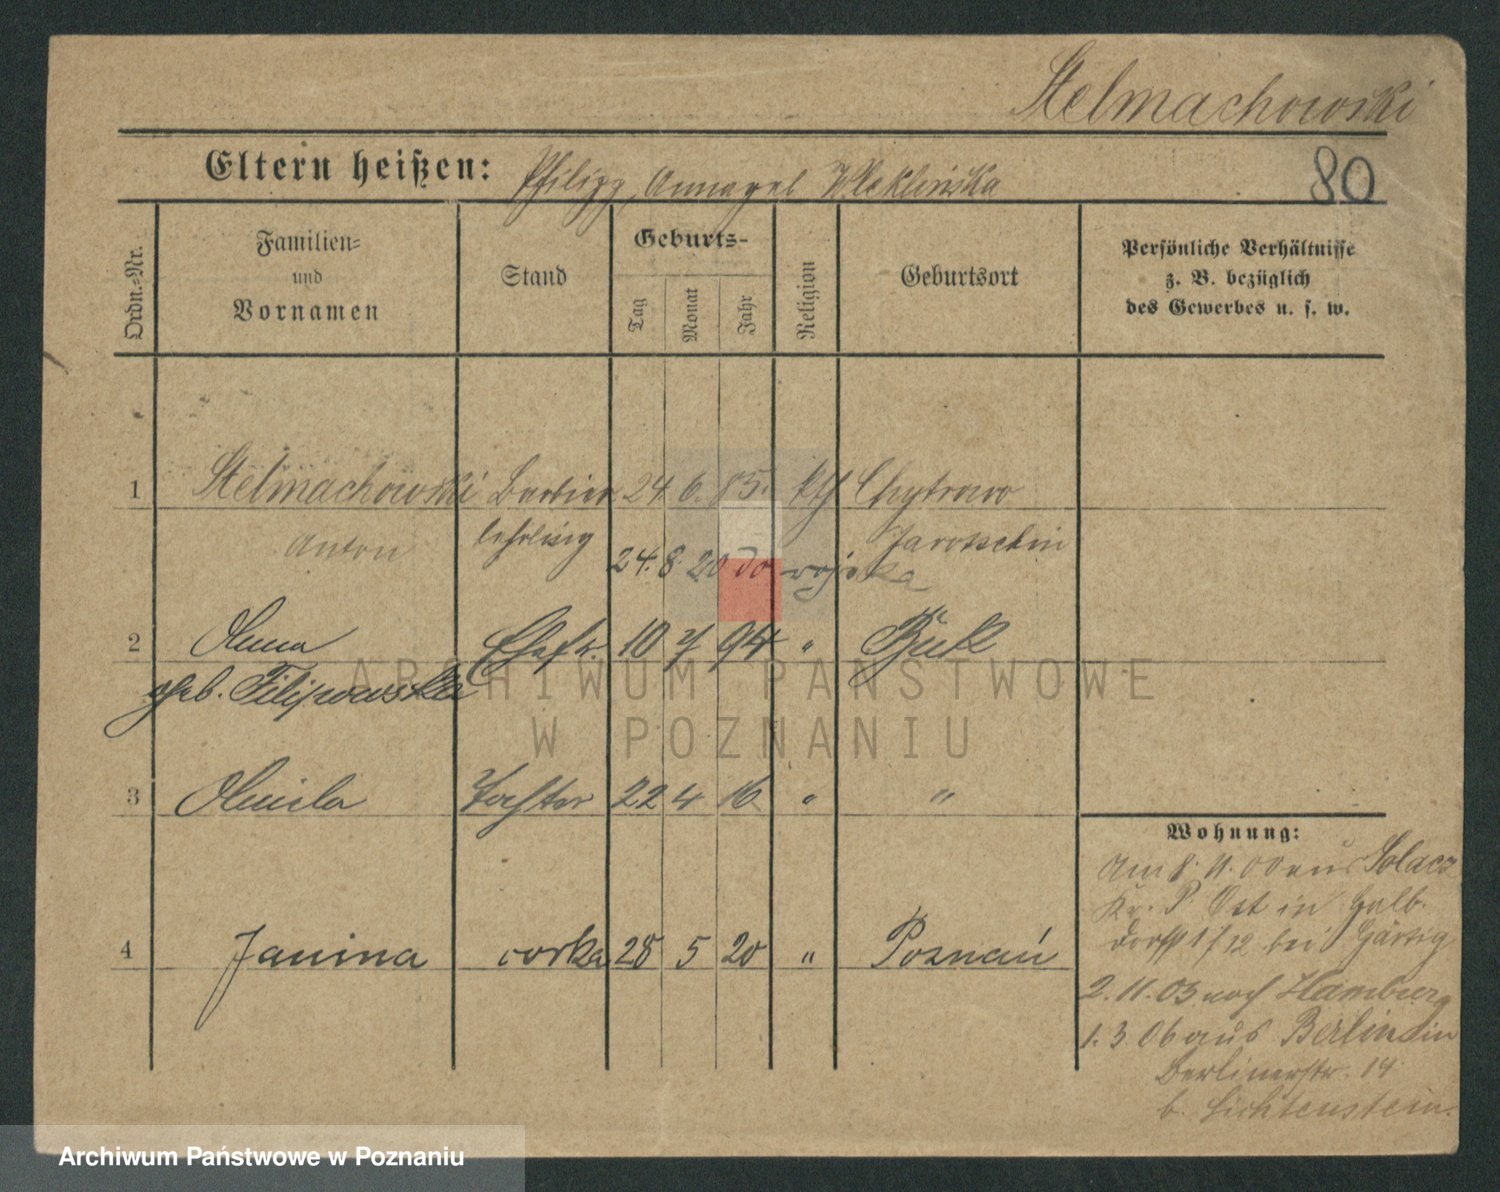 Stelmachowski
Eltern heißen: Philipp, Anna geb Weklinska
80
Ordn.-Nr.
Familien=
und
Vornamen
Stand
Geburts-
Tag
Monat
Jahr
Religion
Geburtsort
Persönliche Verhältnisse
z. B. bezüglich
des Gewerbes u. s. w.
1 Stelmachowski Barbier 24 6. 85. kth Chytrowo
Anton lehrling Jarotschin
24. 8. 20 do wojska
2 Anna Ehefr. 10 7 94 " Buk
geb. Filipowska
3 Tochter 22 4 16 " "
4 Janina corka 28 5 20 " Poznań
Wohnung:
Am 8. 11. 00 aus Solacz
Kr. P. Ost in Halb.
dorff 1/12 bei Gärtig
2. 11. 03 nach Hamburg
1. 3. 06 aus Berlin in
Berlinerstr. 14
b. Lichtenstein.
ARCHIWUM PAŃSTWOWE
W POZNANIU
Archiwum Państwowe w Poznaniu